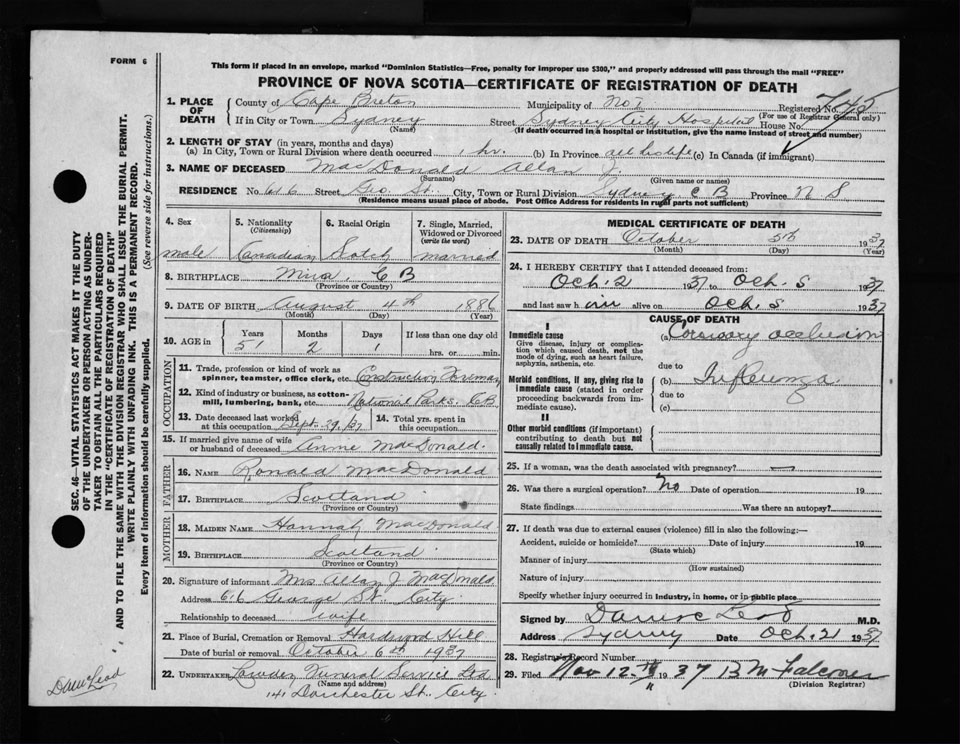 FORM 6
This form if placed in an envelope, marked "Dominion Statistics—Free, penalty for improper use $300," and properly addressed will pass through the mail "FREE"
PROVINCE OF NOVA SCOTIA—CERTIFICATE OF REGISTRATION OF DEATH
1. PLACE OF DEATH
County of Cape Breton Municipality of No 1 Registered No.
(For use of Registrar General only)
If in City or Town Sydney Street Sydney City Hospital House No.
(Name) (If death occurred in a hospital or institution, give the name instead of street and number)
2. LENGTH OF STAY (in years, months and days)
(a) In City, Town or Rural Division where death occurred 1 hr. (b) In Province all his life (c) In Canada (if immigrant)
3. NAME OF DECEASED MacDonald Allan J.
(Surname) (Given name or names)
RESIDENCE No. 616 Street Geo. St. City, Town or Rural Division Sydney C B Province N S
(Residence means usual place of abode. Post Office Address for residents in rural parts not sufficient)
4. Sex
male
5. Nationality
(Citizenship)
Canadian
6. Racial Origin
Scotch
7. Single, Married, Widowed or Divorced
(write the word)
married
8. BIRTHPLACE Mira, C B
(Province or Country)
9. DATE OF BIRTH August 4th 1886
(Month) (Day) (Year)
10. AGE in
Years Months Days If less than one day old
51 2 1 hrs. or min.
OCCUPATION
11. Trade, profession or kind of work as
spinner, teamster, office clerk, etc. Construction Foreman
12. Kind of industry or business, as cotton-
mill, lumbering, bank, etc. National Parks. C B
13. Date deceased last worked
at this occupation Sept. 29, 37
14. Total yrs. spent in
this occupation
15. If married give name of wife
or husband of deceased Anne MacDonald.
FATHER
16. NAME Ronald MacDonald
17. BIRTHPLACE Scotland
(Province or Country)
MOTHER
18. MAIDEN NAME Hannah MacDonald
19. BIRTHPLACE Scotland
(Province or Country)
20. Signature of informant Mrs Allan J MacDonald
Address 616 George St. City
Relationship to deceased wife
21. Place of Burial, Cremation or Removal Hardwood Hill
Date of burial or removal October 6th 1937
22. UNDERTAKER Funeral Service Ltd
(Name and address)
141 Dorchester St. City.
MEDICAL CERTIFICATE OF DEATH
23. DATE OF DEATH October 5th 1937
(Month) (Day) (Year)
24. I HEREBY CERTIFY that I attended deceased from:
Oct. 2 1937 to Oct. 5 1937
and last saw him alive on Oct. 5 1937
CAUSE OF DEATH
I
Immediate cause
Give disease, injury or complica-
tion which caused death, not the
mode of dying, such as heart failure,
asphyxia, asthenia, etc.
(a) Coronary occlusion
due to
Morbid conditions, if any, giving rise to
immediate cause (stated in order
proceeding backwards from im-
mediate cause).
(b) Influenza
due to
(c)
II
Other morbid conditions (if important)
contributing to death but not
causally related to immediate cause.
25. If a woman, was the death associated with pregnancy? —
26. Was there a surgical operation? No Date of operation 19
State findings Was there an autopsy?
27. If death was due to external causes (violence) fill in also the following:—
Accident, suicide or homicide? Date of injury 19
(State which)
Manner of injury
(How sustained)
Nature of injury
Specify whether injury occurred in industry, in home, or in public place
Signed by M.D.
Address Sydney Date Oct. 21 1937
28. Registrar's Record Number
29. Filed Nov 12 1937
(Division Registrar)
SEC. 46—VITAL STATISTICS ACT MAKES IT THE DUTY
OF THE UNDERTAKER OR PERSON ACTING AS UNDER-
TAKER TO OBTAIN ALL THE PARTICULARS REQUIRED
IN THE "CERTIFICATE OF REGISTRATION OF DEATH"
AND TO FILE THE SAME WITH THE DIVISION REGISTRAR WHO SHALL ISSUE THE BURIAL PERMIT.
WRITE PLAINLY WITH UNFADING INK. THIS IS A PERMANENT RECORD.
Every item of information should be carefully supplied. (See reverse side for instructions.)